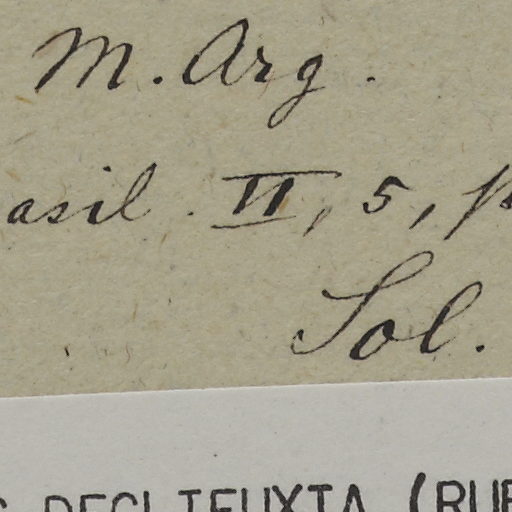 M. Arg.
asil. II, 5, p
Sol.
DECLIEUXIA (RUB